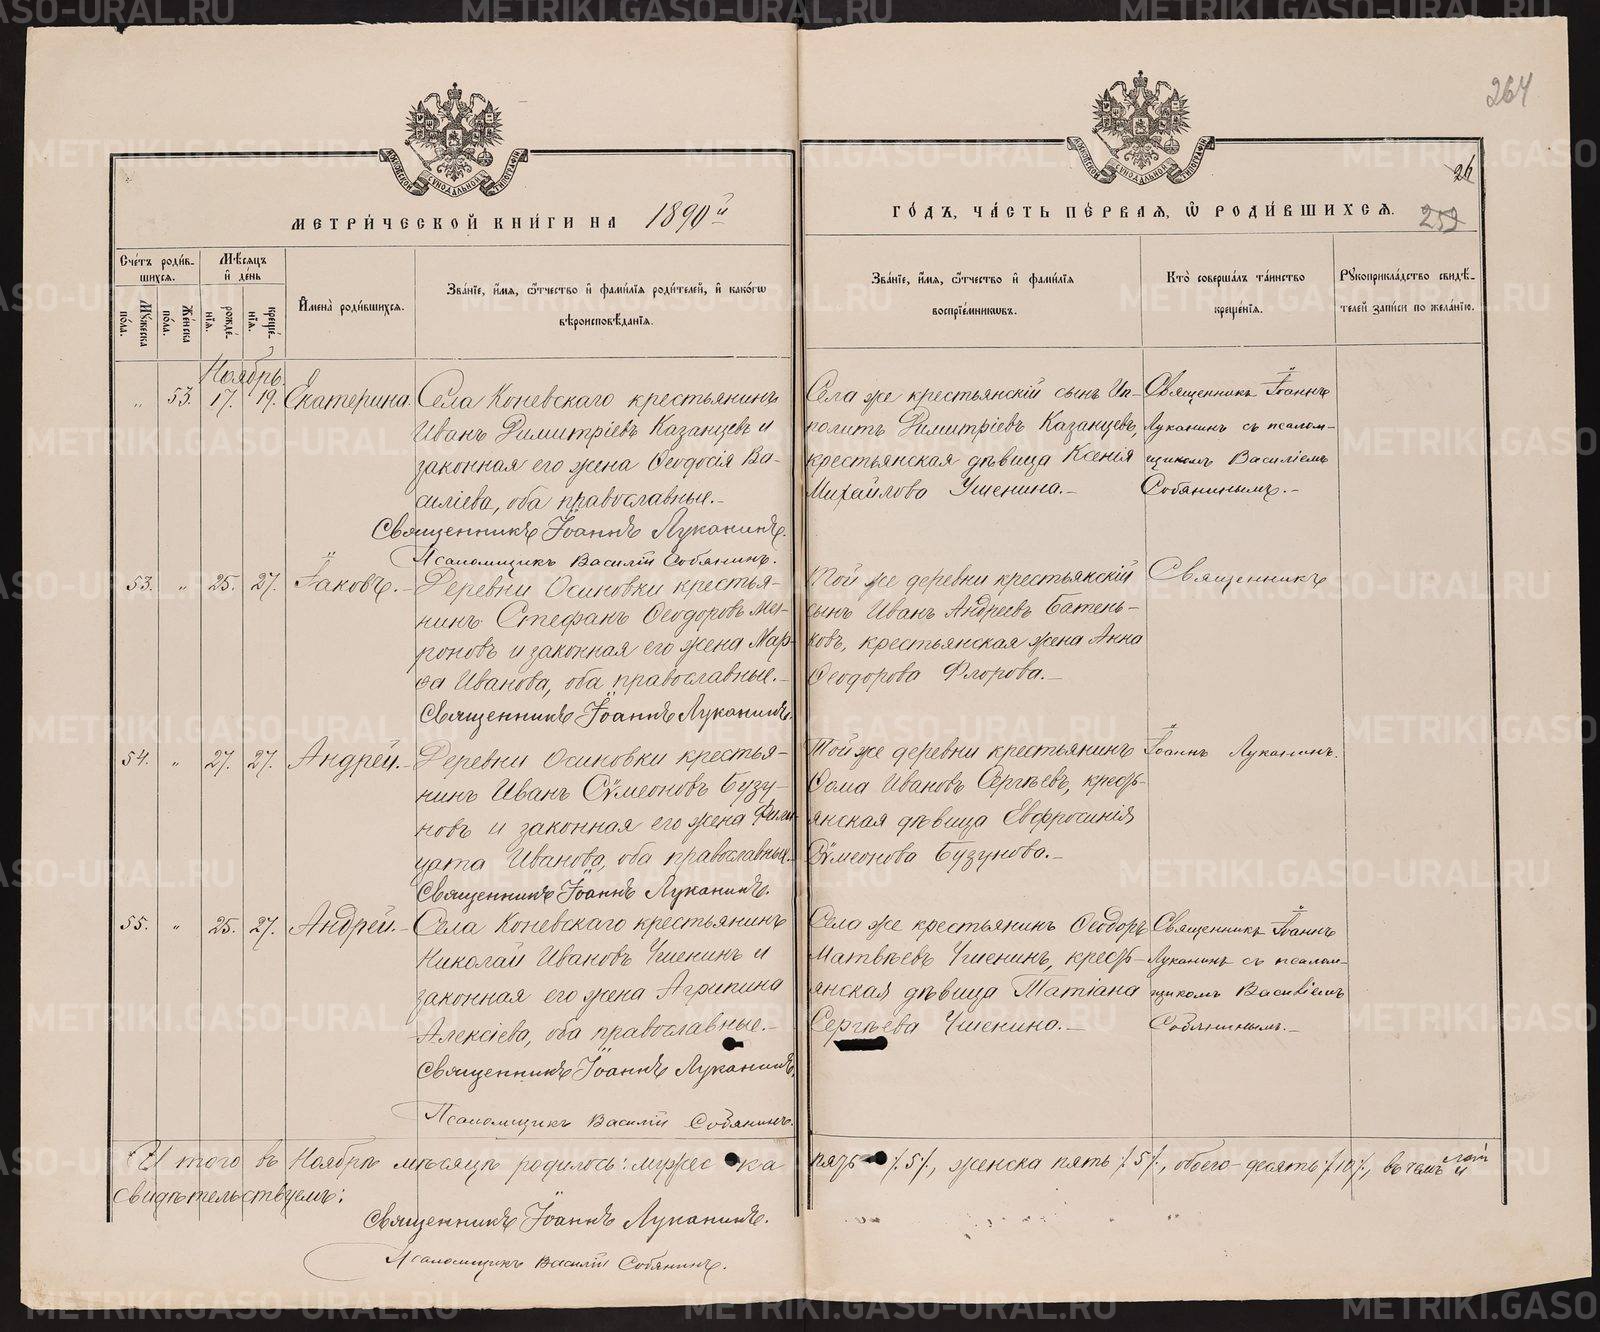 264
26
252
МОСКОВСКОЙ СѴНОДАЛЬНОЙ ТИПОГРАФІИ
МОСКОВСКОЙ СѴНОДАЛЬНОЙ ТИПОГРАФІИ
МЕТРИ́ЧЕСКОЙ КНИ́ГИ НА 1890й
ГО́ДЪ, ЧА́СТЬ ПЕ́РВАЯ, Ѽ РОДИ́ВШИХСЯ.
Сче́тъ роди́в-
шихся.
Мѣ́сяцъ
и҆ де́нь
Му́жеска
по́ла.
Же́нска
по́ла.
рожде́-
нїя.
креще́-
нїя.
И҆мена̀ роди́вшихся.
Зва́нїе, и҆́мя, ѻ҆́тчество и҆ фами́лїя роди́телей, и҆ како́гѡ
вѣроисповѣ́данїя.
Зва́нїе, и҆́мя, ѻ҆́тчество и҆ фами́лїя
воспрїе́мникѡвъ.
Кто̀ соверша́лъ та́инство
креще́нїя.
Рꙋкоприкла́дство свидѣ́-
телей за́писи по жела́нїю.
Ноябрь.
„ 53. 17. 19. Екатерина. Села Коневскаго крестьянинъ
Иванъ Димитріевъ Казанцевъ и
законная его жена Ѳеодосія Ва-
силіева, оба православные.-
Священникъ Іоаннъ Луканинъ.
Псаломщикъ Василій Собянинъ.
Села же крестьянскій сынъ Ип-
политъ Димитріевъ Казанцевъ,
крестьянская дѣвица Ксенія
Михайлова Ушенина.-
Священникъ Іоаннъ
Луканинъ съ псалом-
щикомъ Василіемъ
Собянинымъ.-
53. „ 25. 27. Іаковъ.- Деревни Осиновки крестья-
нинъ Стефанъ Ѳеодоровъ Ме-
роновъ и законная его жена Мар-
ѳа Иванова, оба православные.-
Священникъ Іоаннъ Луканинъ.
Той же деревни крестьянскій
сынъ Иванъ Андреевъ Батень-
ковъ, крестьянская жена Анна
Ѳеодорова Флорова.-
Священникъ
54. „ 27. 27. Андрей.- Деревни Осиновки крестья-
нинъ Иванъ Сѵмеоновъ Бузу-
новъ и законная его жена Фили-
цата Иванова, оба православные.-
Священникъ Іоаннъ Луканинъ.
Той же деревни крестьянинъ
Ѳома Ивановъ Сергѣевъ, кресть-
янская дѣвица Евфросинія
Сѵмеонова Бузунова.-
Іоаннъ Луканинъ.
55. „ 25. 27. Андрей.- Села Коневскаго крестьянинъ
Николай Ивановъ Ушенинъ и
законная его жена Агрипина
Алексіева, оба православные.-
Священникъ Іоаннъ Луканинъ.
Псаломщикъ Василій Собянинъ.
Села же крестьянинъ Ѳеодоръ
Матвѣевъ Ушенинъ, кресть-
янская дѣвица Татіана
Сергѣева Ушенина.-
Священникъ Іоаннъ
Луканинъ съ псалом-
щикомъ Василіемъ
Собянинымъ.-
Итого въ Ноябрѣ мѣсяцѣ родилось: мужеска пять ./5/., женска пять ./5/., обоего десять ./10/., въ чемъ и
свидѣтельствуемъ:
Священникъ Іоаннъ Луканинъ.
Псаломщикъ Василій Собянинъ.